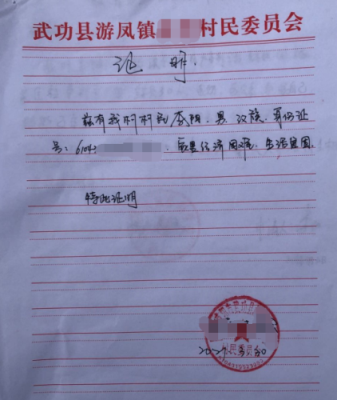 武功县游凤镇 村民委员会
证明
兹有我村村民李阳,男,汉族,身份证
号:6104 ,家里经济困难,生活贫困。
特此证明